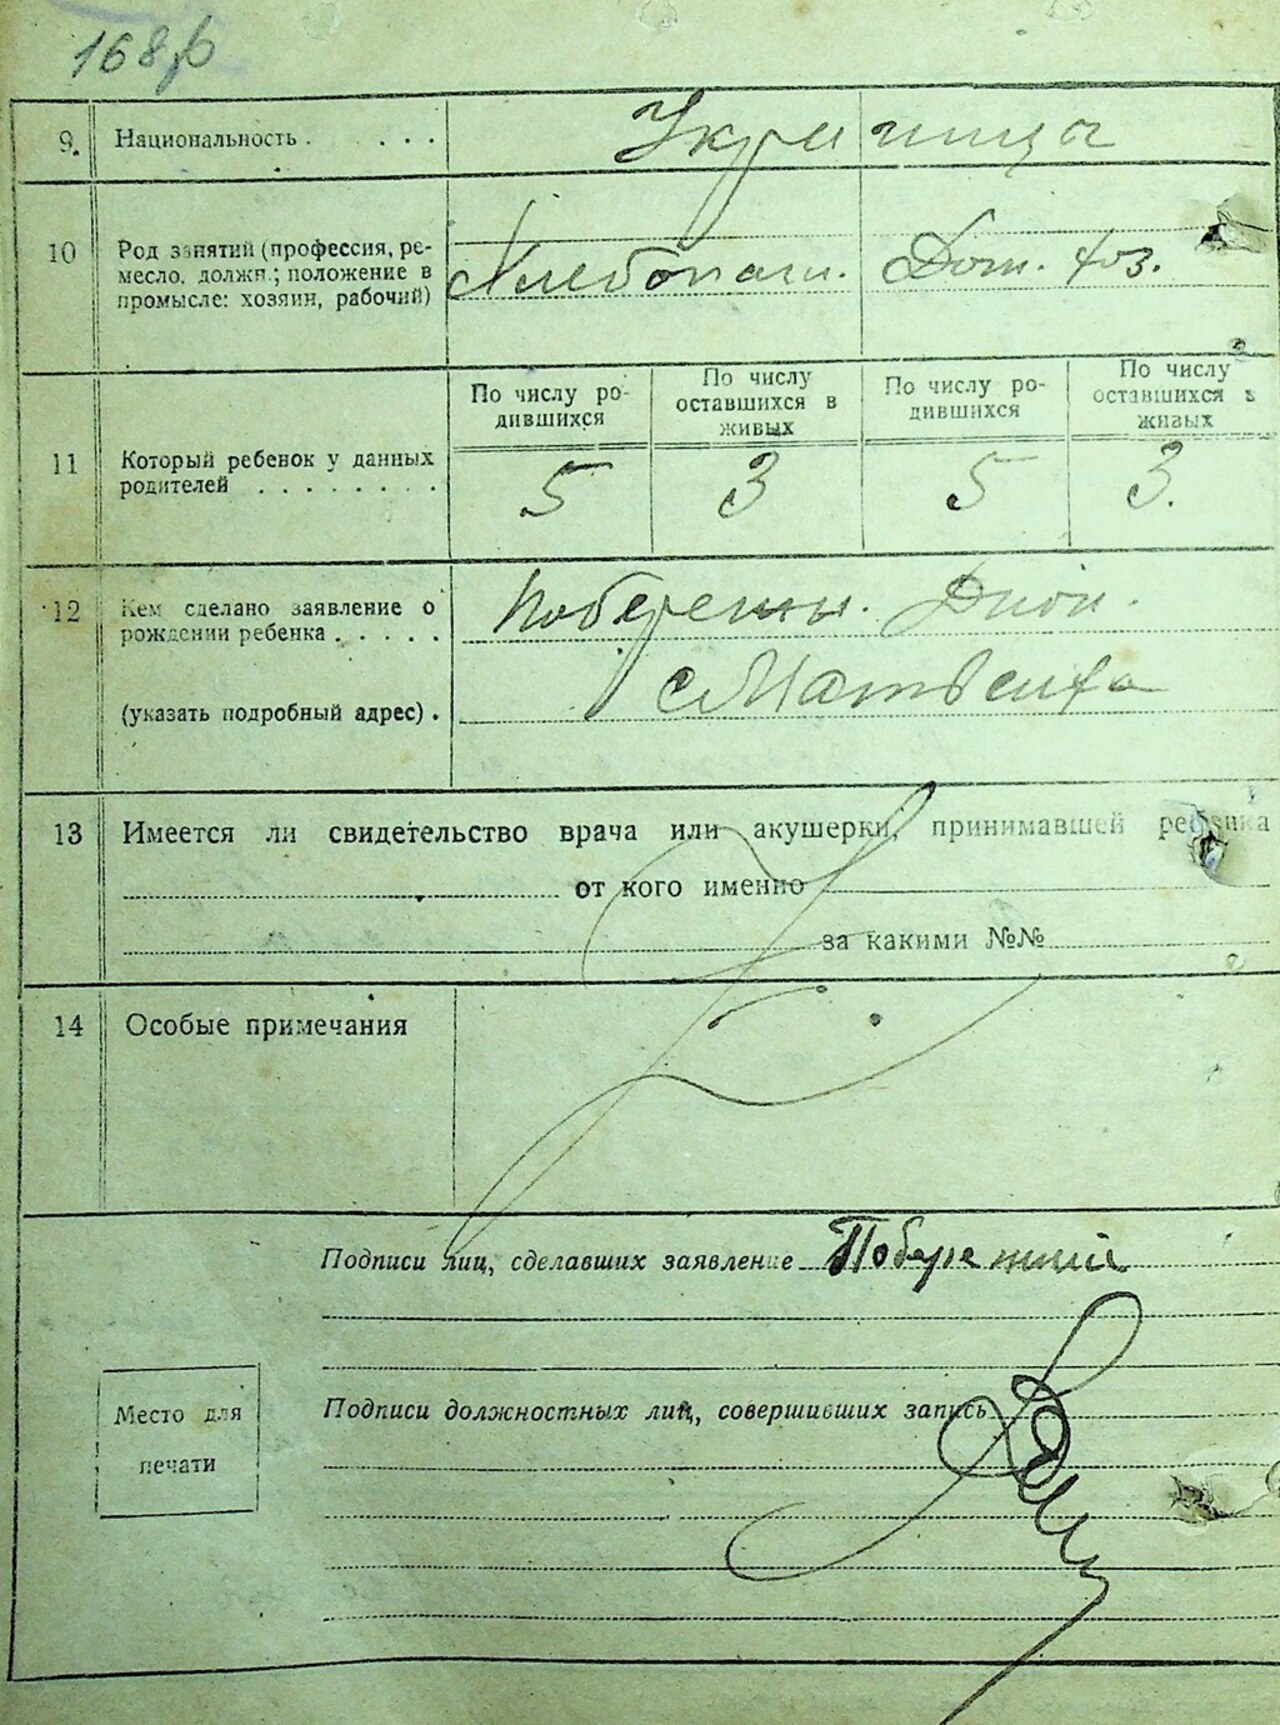 9. Национальность . . . . Украинцы
10 Род занятий (профессия, ре-
месло. должн.; положение в
промысле: хозяин, рабочий)
Хлебопаш. Дом. хоз.
По числу ро-
дившихся
По числу
оставшихся в
живых
По числу ро-
дившихся
По числу
оставшихся в
живых
11 Который ребенок у данных
родителей . . . . . . . .
5 3 5 3.
12 Кем сделано заявление о
рождении ребенка . . . . .
(указать подробный адрес) .
с Матвеиха
13 Имеется ли свидетельство врача или акушерки, принимавшей ребенка
от кого именно
за какими №№
14 Особые примечания
Подписи лиц, сделавших заявление Побережний
Подписи должностных лиц, совершивших запись
Место для
печати